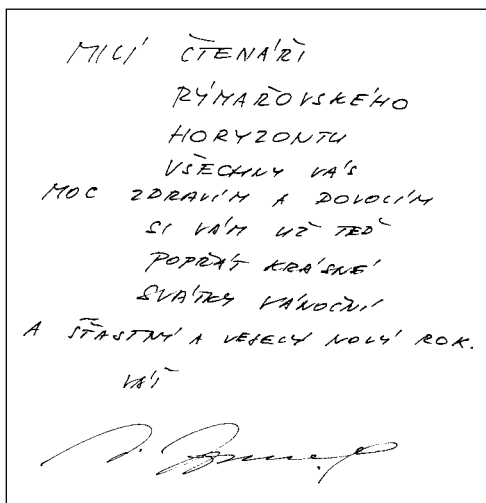 MILÍ ČTENÁŘI
RÝMAŘOVSKÉHO
HORYZONTU
VŠECHNY VÁS
MOC ZDRAVÍM A DOVOLÍM
SI VÁM UŽ TEĎ
POPŘÁT KRÁSNÉ
SVÁTKY VÁNOČNÍ
A ŠŤASTNÝ A VESELÝ NOVÝ ROK.
VÁŠ